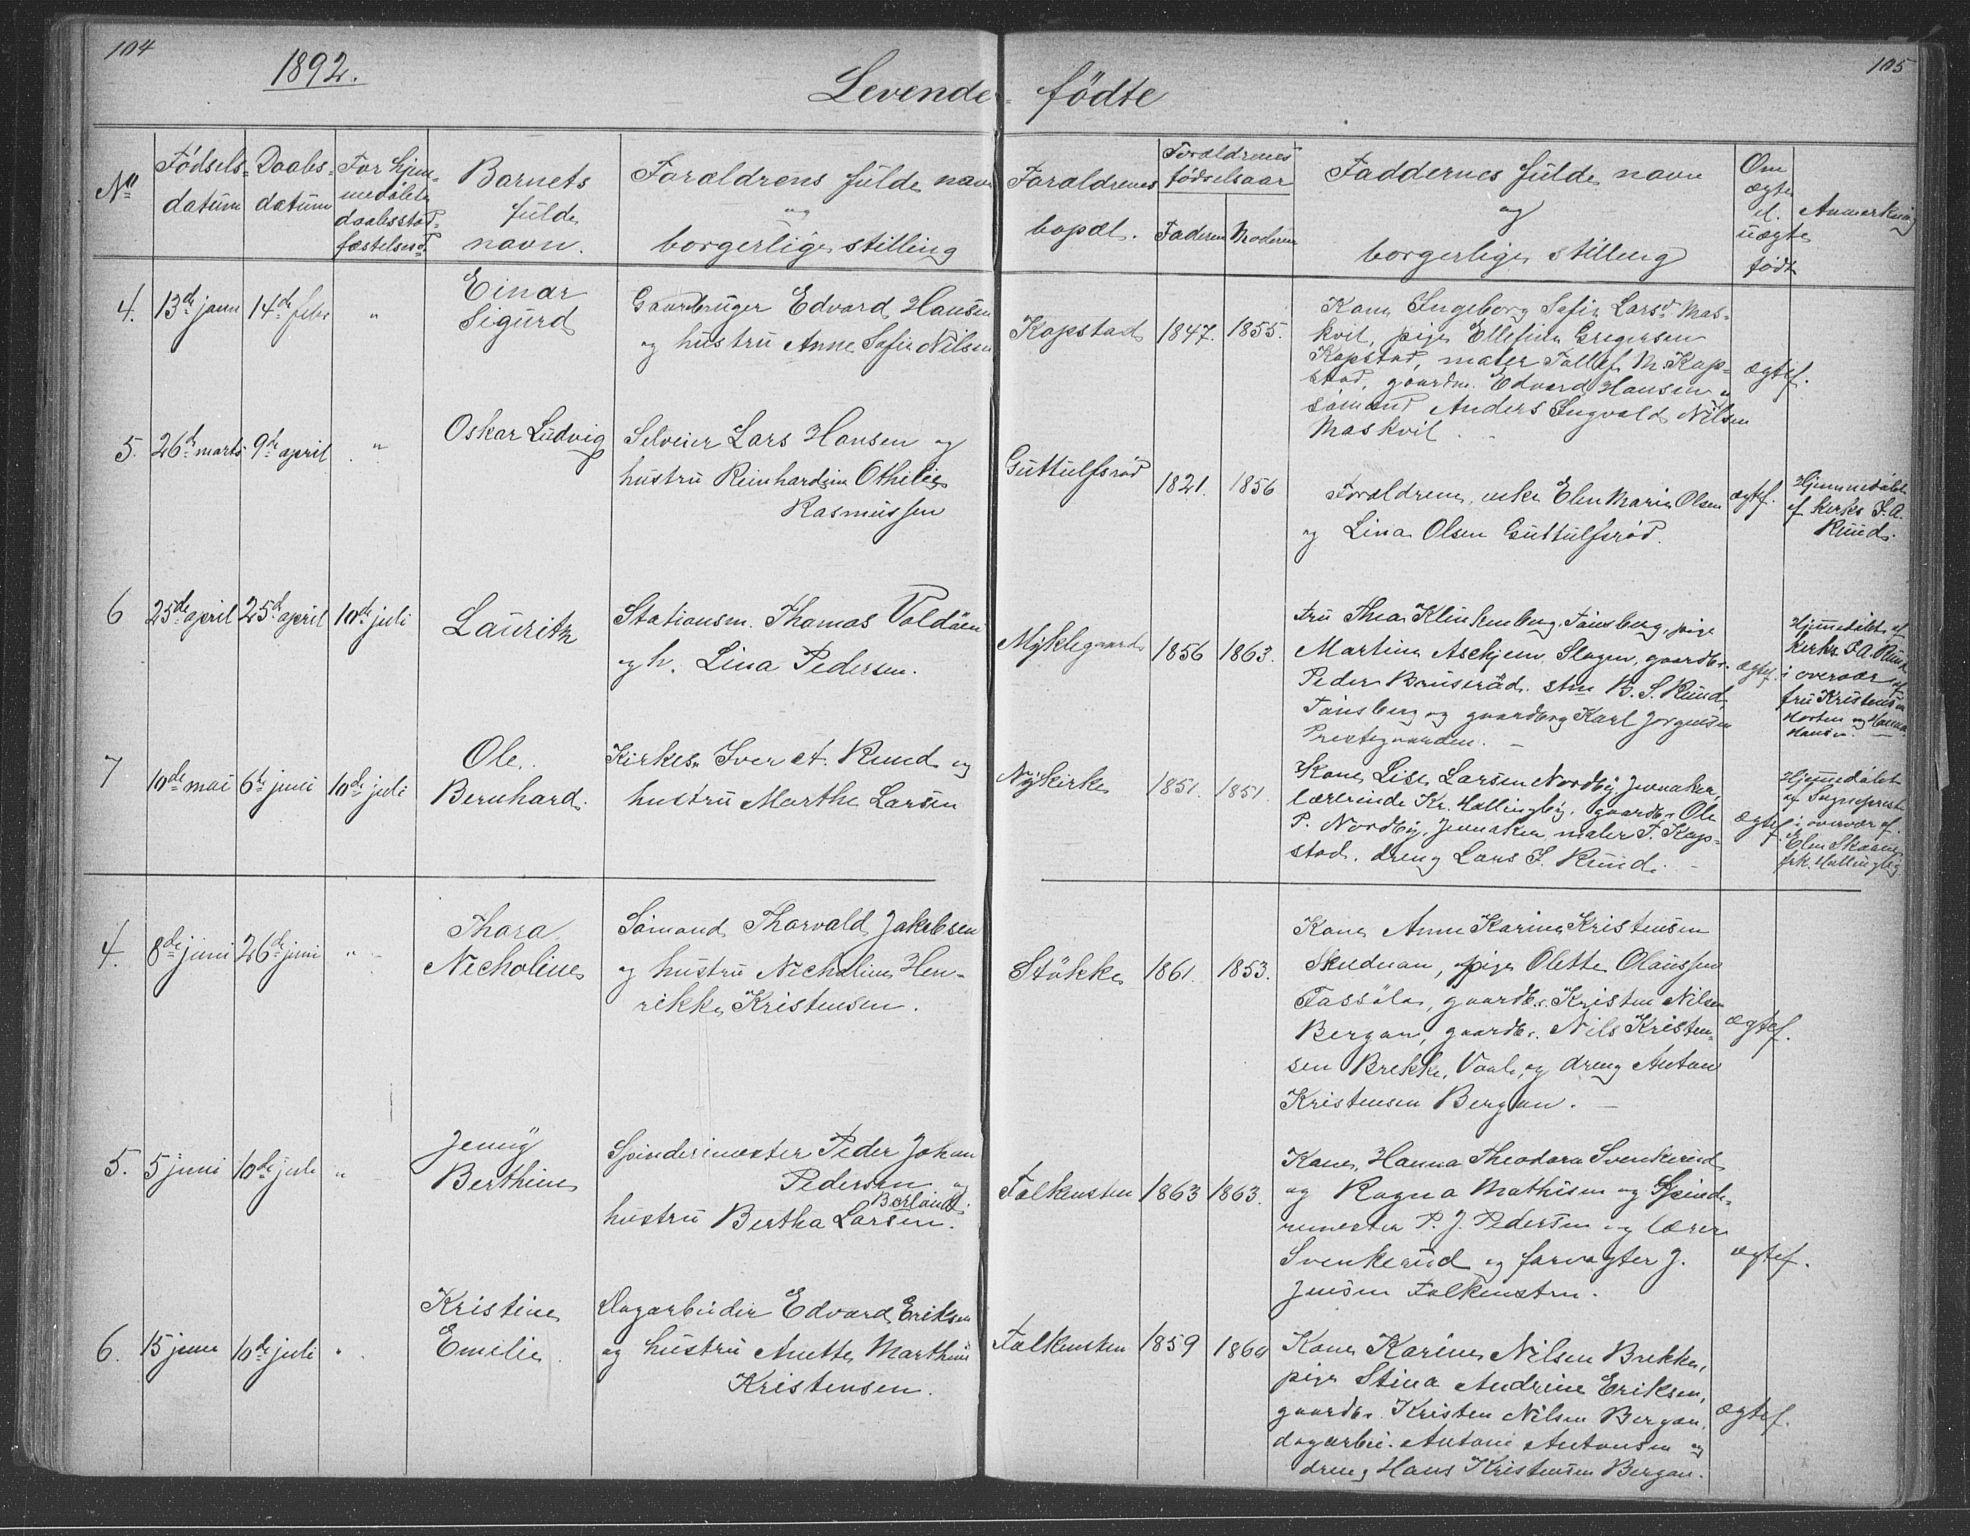 104
105
1892.
Levende- fødte
No
Fødsels-
datum
Daabs-
datum
For hjem-
medøbte
daabsstad-
fæstelsesd.
Barnets
fulde
navn.
Forældrens fulde navn
og
borgerlige stilling
Forældrenes
bopæl.
Forældrenes
fødselsaar
Faderen
Moderen
Faddernes fulde navn
og
borgerlige stilling
Om
ægte
el.
uægte
født
Anmerkning
4.
13de janu
14de febr
"
Einar
Sigurd
Gaardbruger Edvard Hansen
og hustru Anne Sofie Nilsen
Kopstad
1847.
1855.
Kone Ingeborg Sofie Larsd. Mas-
kvil, pige Ellefine Gregersen
Kopstad, maler Tollef M. Kop-
stad, gaardm. Edvard Hansen og
sømand Anders Ingvald Nilsen
Maskvil.
ægtef.
5.
26de marts
9de april
"
Oskar Ludvig
Selveier Lars Hansen og
hustru Reinhardine Othilie
Rasmussen
Guttulfsrød
1821.
1856
Forældrene, enke Elen Marie Olsen
og Lina Olsen Guttulfsrød.
ægtef.
Hjemmedøbt
af kirks. I. A.
Ruud.
6
25de april
25de april
10de juli
Laurith
Stationsm. Thomas Voldøen
og h. Lina Pedersen.
Myklegaard
1856
1863.
Fru Thea Klinkenberg, Tønsberg, pige
Martine Askjem Slagen, gaardbr.
Peder Bruserød. stm B. S. Ruud,
Tønsberg og gaardbrg Karl Jørgensen
Prestegaarden. —
ægtef.
Hjemmedøbt af
kirks. I. A. Ruud
i overvær af
fru Kristensen
Horten og Hanna
Hansen.
7
10de mai
6te juni
10de juli
Ole
Bernhard.
Kirkes. Iver A. Ruud og
hustru Marthe Larsen
Nykirke
1851.
1851.
Kone Lise Larsen Nordby, Jevnaker,
lærerinde Kr. Hallingby, gaardbr. Ole
P. Nordby, Jevnaker, maler T. Kop-
stad, dreng Lars I. Ruud. —
ægtef.
Hjemmedøbt
af Sogneprest
i overvær af
Elen Skaane
frk. Hallingby
4.
8de juni
26de juni
"
Thora
Nicholine
Sømand Thorvald Jakobsen
og hustru Nicholine Hen-
rikke Kristensen.
Stokke
1861.
1853.
Kone Anne Karine Kristensen
Skuduan, pige Olette Olaussen
Fassøla, gaardbr. Kristen Nilsen
Bergan, gaardbr. Nils Kristen-
sen Brekke, Vaale, og dreng Anton
Kristensen Bergan. —
ægtef.
5.
5 juni
10de juli
"
Jenny
Berthine
Spinderimester Peder Johan
Pedersen og
Borland
hustru Bertha Larsen.
Falkensten
1863
1863.
Kone Hanna Theodora Svenkerud
og Ragna Mathisen og Spinde-
rimester P. J. Pedersen og lærer
Svenkerud og farvagter J.
Jensen Falkensten.
ægtef.
6.
15 juni
10de juli
"
Kristine
Emilie.
Dagarbeider Edvard Eriksen
og hustru Anette Marthine
Kristensen.
Falkensten
1859
1860
Kone Karine Nilsen Brekke,
pige Stina Andrine Eriksen,
gaardbr. Kristen Nilsen Bergan,
dagarbei. Antoni Antonsen og
dreng Hans Kristensen Bergan.
ægtef.